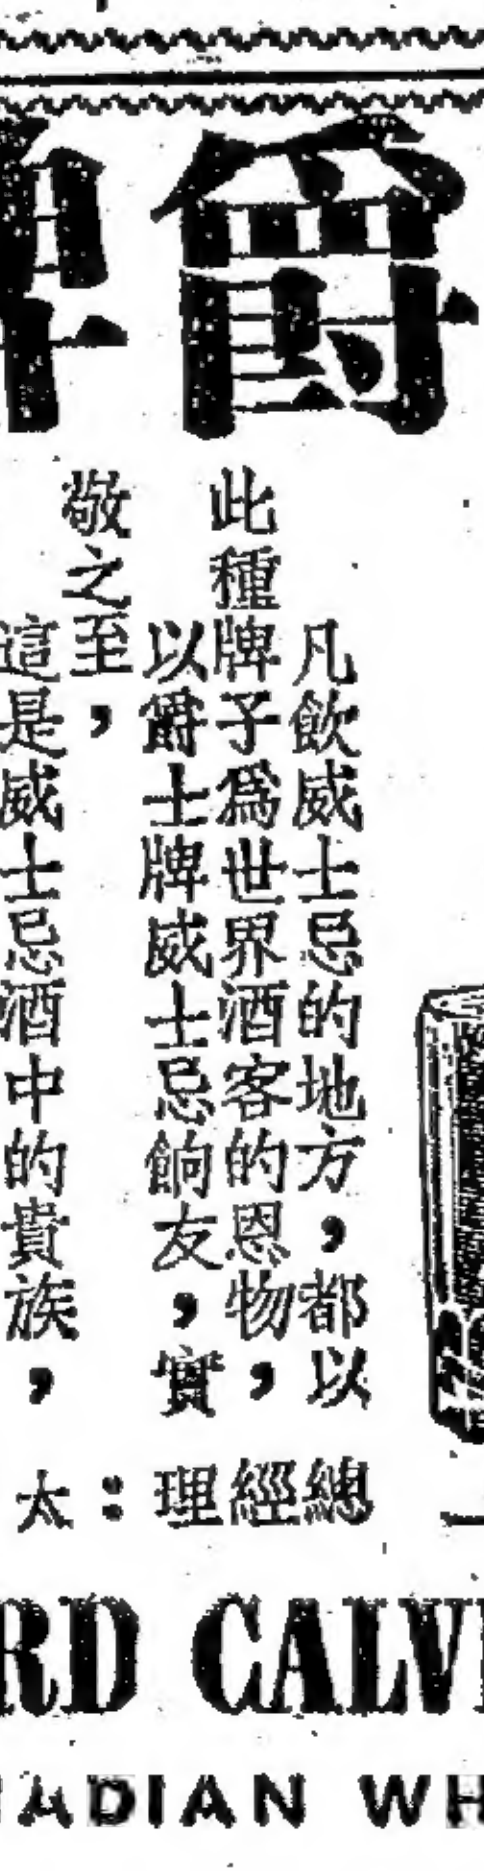 爵
凡飲威士忌的地方，都以
此種牌子爲世界酒客的恩物，
以爵士牌威士忌餉友，實
敬之至，
這是威士忌酒中的貴族，
總經理：太
RD CALV
ADIAN WH